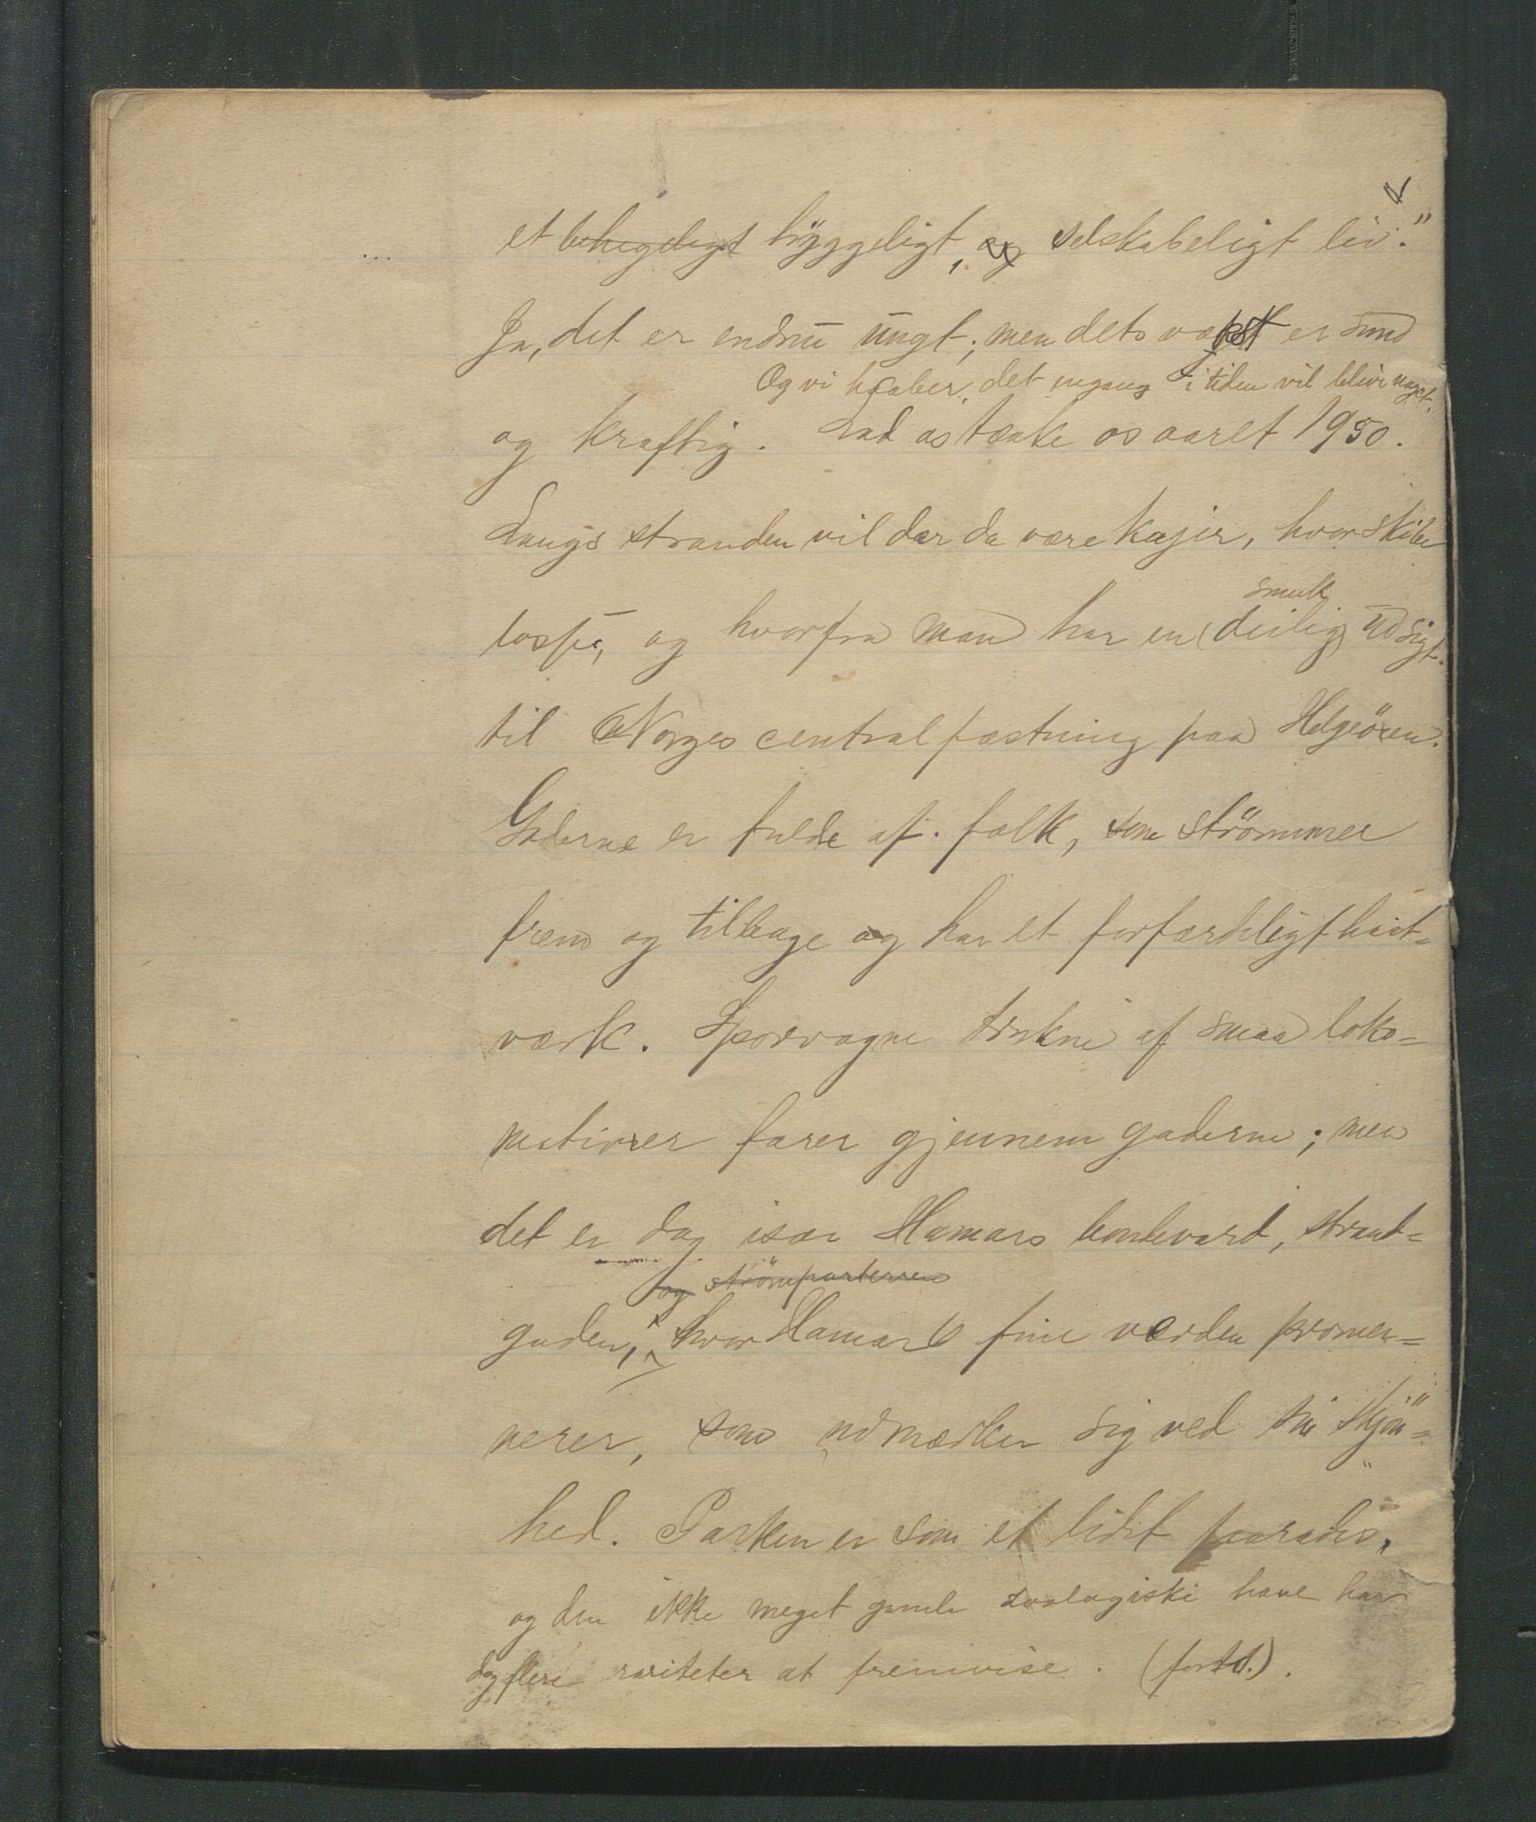 et behageligt hyggeligt, og selskabeligt liv."
Ja, det er endnu ungt; men dets vækst er sund
Og vi haaber, det engang i tiden vil blive noget.
og kraftig. Lad os tænke os aaret 1950.
Langs stranden vil der da være kajer, hvor skibe
losse, og hvorfra man har en (deilig) udsigt
smuk
til Norges centralfæstning paa Helgeöen.
Gaderne er fulde af folk, som strömmer
frem og tilbage og har et forfærdeligt hast=
værk. Sporvogne trukne af smaa loko=
motiver farer gjennem gaderne; men
det er dog især Hamars boulevard, strand=
og strömparterren
gaden, hvor Hamars fine verden prome=
nerer, som udmærker sig ved sin skjön=
hed. Parken er som et lidet paradis,
og den ikke meget gamle zoologiske have har
dog flere rariteter at fremvise. (forts.).